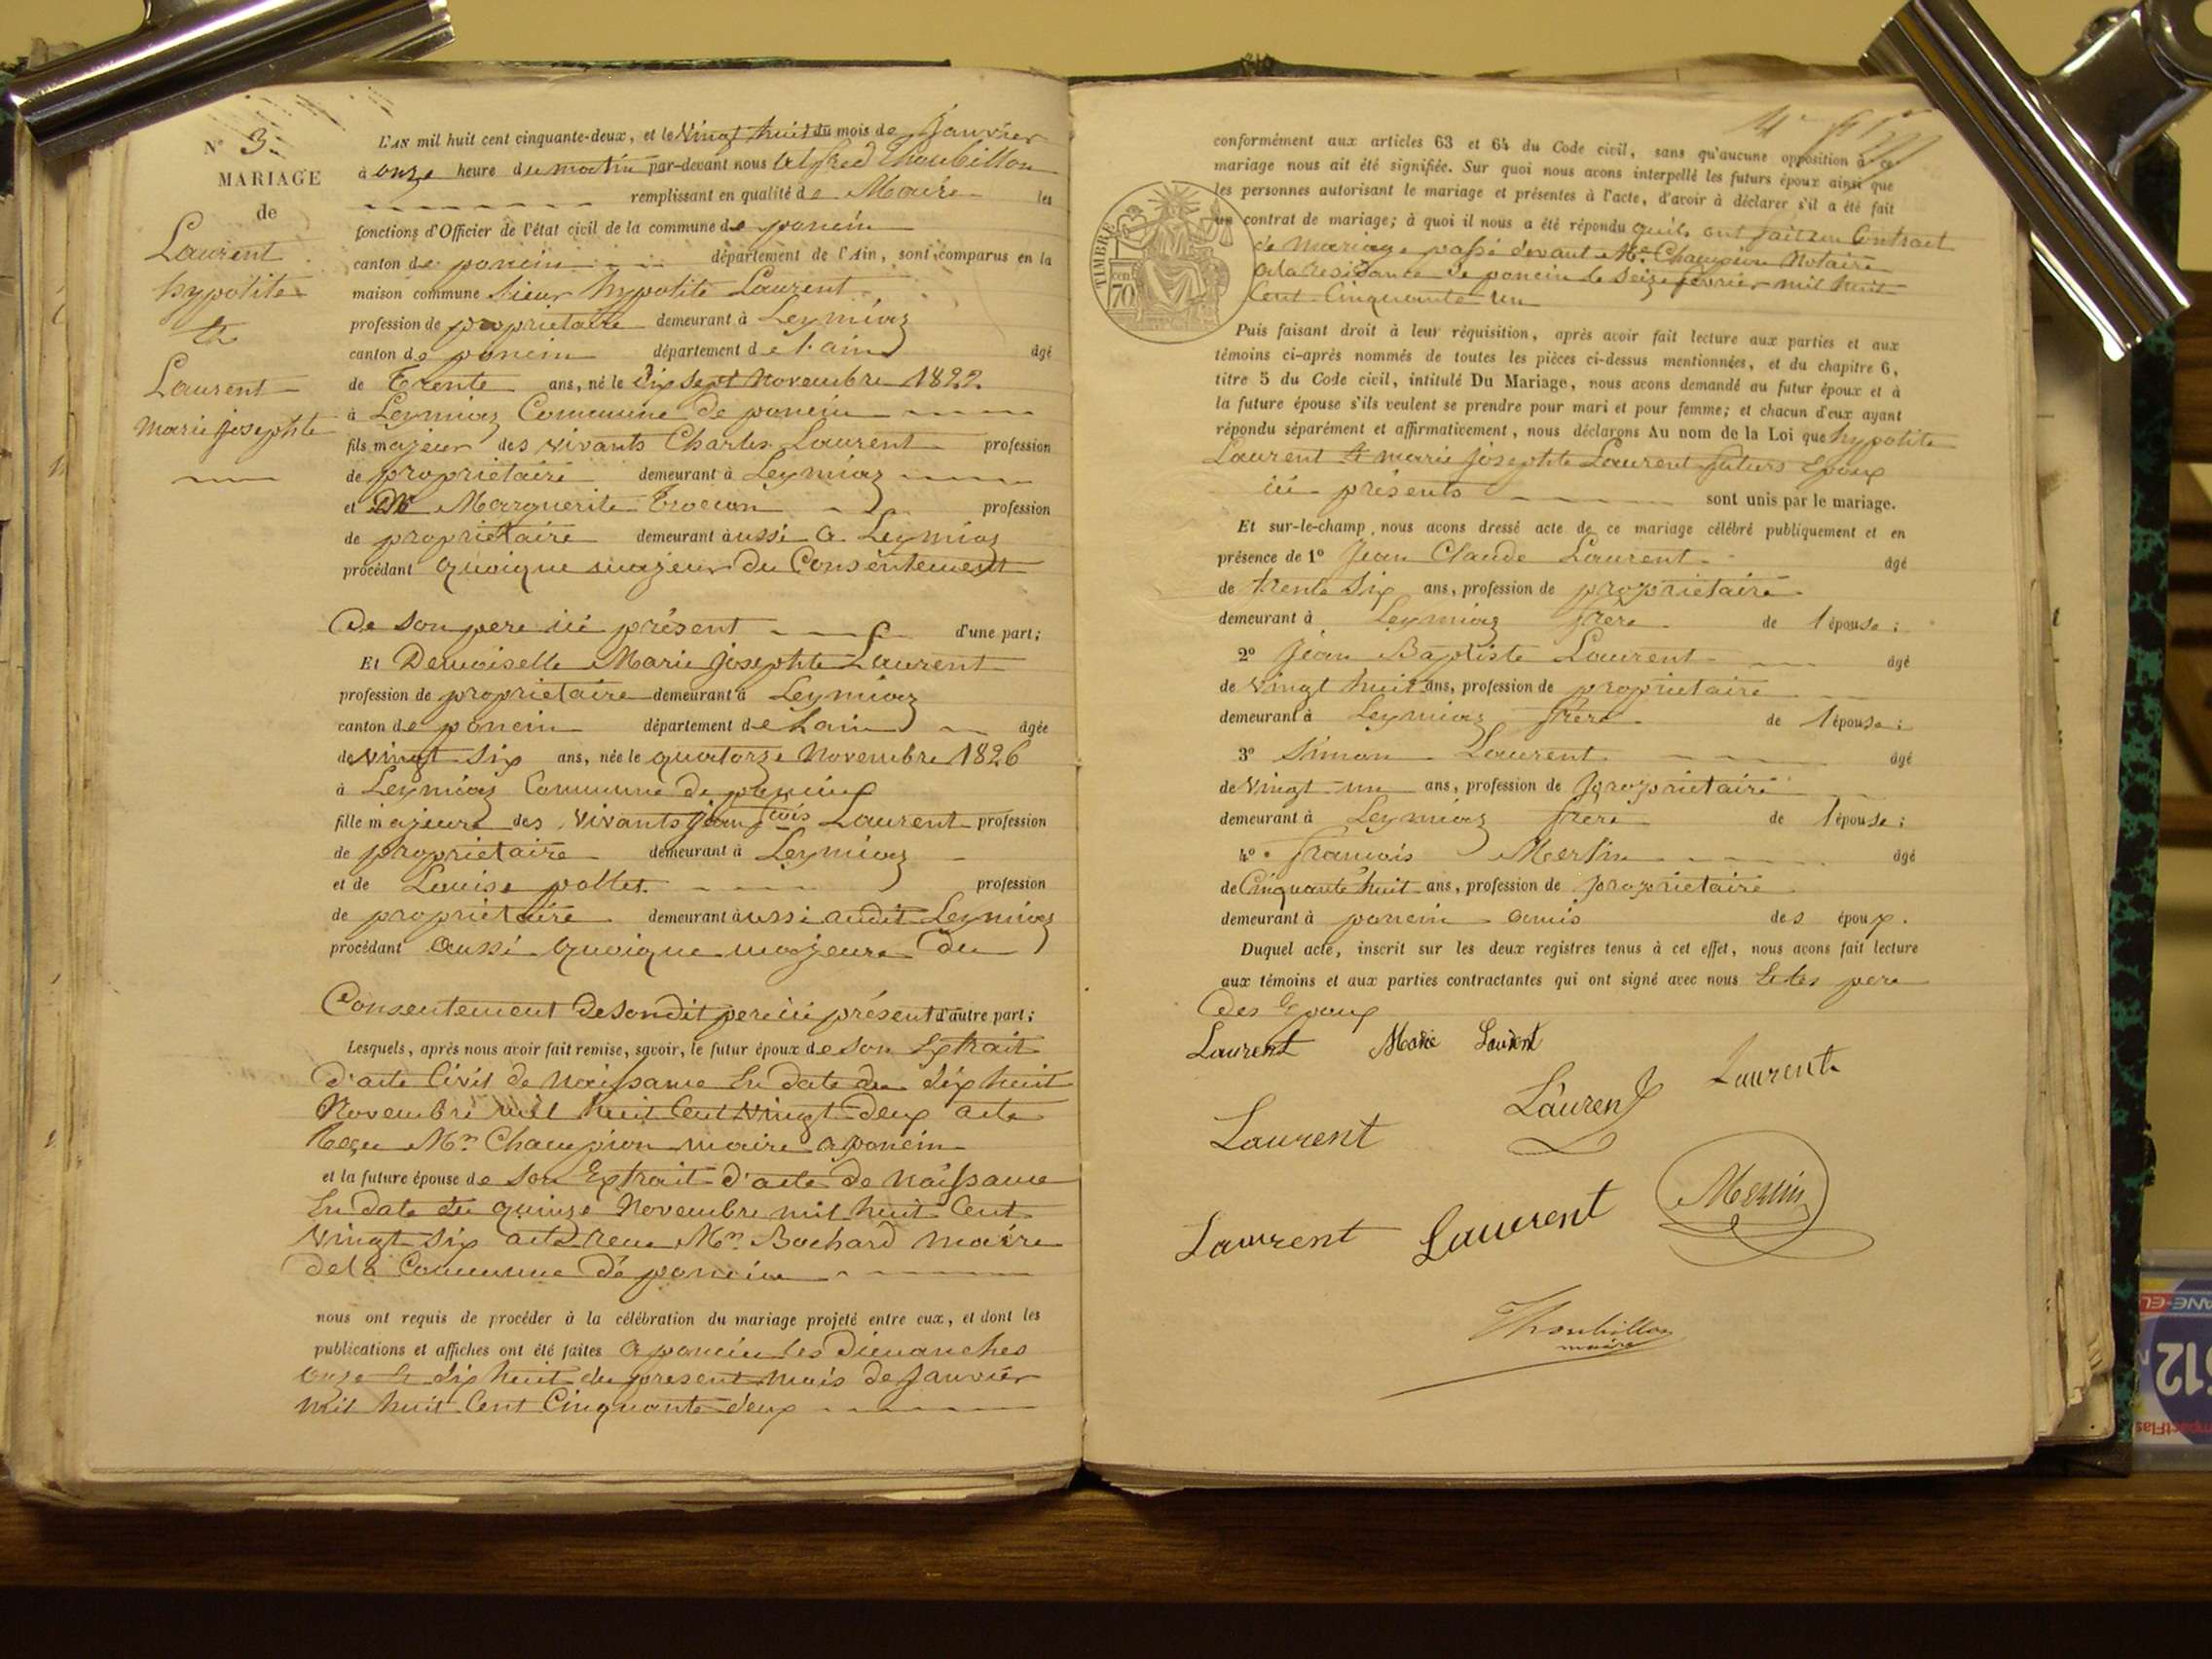 N° 3.
MARIAGE
de
Laurent
hypolite
et
Laurent
Marie josephte
L'AN mil huit cent cinquante-deux, et le vingt huit du mois de Janvier
à onze heure du matin par-devant nous alfred Thoubillon
remplissant en qualité de Maire les
fonctions d'Officier de l'état civil de la commune de poncin
canton de poncin département de l'Ain, sont comparus en la
maison commune Sieur hypolite Laurent
profession de proprietaire demeurant à Leymiaz
canton de poncin département de l'ain âgé
de Trente ans, né le dix sept Novembre 1822
à Leymiaz Commune de poncin
fils majeur des vivants Charles Laurent profession
de proprietaire demeurant à Leymiaz
et Marguerite profession
de proprietaire demeurant à ussi a Leymiaz
procédant quoique majeur du Consentement
De son pere ici présent d'une part;
Et Demoiselle Marie josephte Laurent
profession de proprietaire demeurant à Leymiaz
canton de poncin département de Lain âgée
de vingt six ans, née le quatorze Novembre 1826
à Leymiaz Commune de poncin
fille majeure des vivants jean fcois Laurent profession
de proprietaire demeurant à Leymiaz
et de Louise pollet profession
de proprietaire demeurant à ussi audit Leymiaz
procédant aussi quoique majeure du
Consentement de son dit pere ici présent d'autre part;
Lesquels, après nous avoir fait remise, savoir, le futur époux de son Extrait
d'acte Civil de Naissance En date du dix huit
Novembre mil huit Cent vingt deux acte
Reçu Mr. Champion maire a poncin
et la future épouse de son Extrait d'acte de Naissance
En date du quinze Novembre mil huit Cent
vingt six acte reçu Mr. Bochard maire
de la Commune de poncin
nous ont requis de procéder à la célébration du mariage projeté entre eux, et dont les
publications et affiches ont été faites a poncin les Dimanches
onze et dix huit du present mois de Janvier
mil huit Cent Cinquante deux
conformément aux articles 63 et 64 du Code civil, sans qu'aucune opposition à ce
mariage nous ait été signifiée. Sur quoi nous avons interpellé les futurs époux ainsi que
les personnes autorisant le mariage et présentes à l'acte, d'avoir à déclarer s'il a été fait
un contrat de mariage; à quoi il nous a été répondu quils ont fait un Contrat
de mariage passé devant Me. Champion Notaire
a la residance de poncin le seize fevrier mil huit
Cent Cinquante un
TIMBRE
cen
70
Puis faisant droit à leur réquisition, après avoir fait lecture aux parties et aux
témoins ci-après nommés de toutes les pièces ci-dessus mentionnées, et du chapitre 6,
titre 5 du Code civil, intitulé Du Mariage, nous avons demandé au futur époux et à
la future épouse s'ils veulent se prendre pour mari et pour femme; et chacun d'eux ayant
répondu séparément et affirmativement, nous déclarons Au nom de la Loi que hypolite
Laurent et marie josephte Laurent futurs Epoux
ici présents sont unis par le mariage.
Et sur-le-champ nous avons dressé acte de ce mariage célébré publiquement et en
présence de 1° Jean Claude Laurent âgé
de trente six ans, profession de proprietaire
demeurant à Leymiaz frère de l'épouse;
2° Jean Baptiste Laurent âgé
de vingt huit ans, profession de proprietaire
demeurant à Leymiaz frère de l'épouse;
3° Simon Laurent âgé
de vingt un ans, profession de proprietaire
demeurant à Leymiaz frère de l'épouse;
4° francois Merlin âgé
de Cinquante huit ans, profession de proprietaire
demeurant à poncin amis des époux.
Duquel acte, inscrit sur les deux registres tenus à cet effet, nous avons fait lecture
aux témoins et aux parties contractantes qui ont signé avec nous Et les pere
des Epoux
Laurent Marie Laurent
Laurent Laurent
Laurent
Laurent Laurent Merlin
Thoubillon
maire